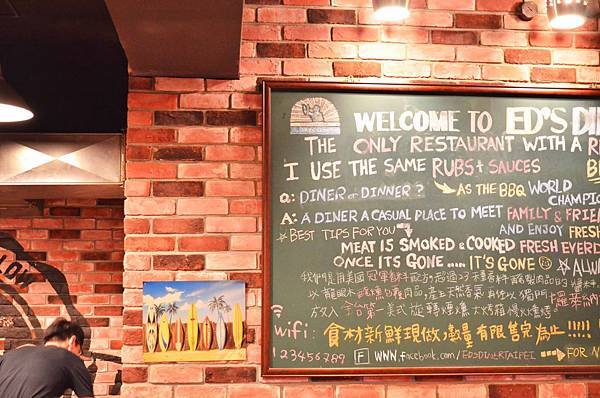 WELCOME TO ED'S DI
THE ONLY RESTAURANT WITH A R
I USE THE SAME RUBS + SAUCES
Q: DINER or DINNER? AS THE BBQ WORLD
CHAMPIO
A: A DINER A CASUAL PLACE TO MEET FAMILY & FRIE
AND ENJOY FRESH
★BEST TIPS FOR YOU
MEAT IS SMOKED & COOKED FRESH EVERD
ONCE ITS GONE ..... IT'S GONE
★ALWA
我們使用美國冠軍香料
放入全台第一美式旋轉煙燻大烤箱慢火
wifi: 食材新鮮現做,數量有限售完為止!!!!!
123456789
F www.facebook.com/EDSDINERTAIPEI
FOR
LOW